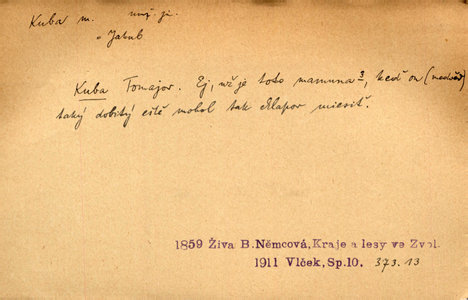 Kuba m. muž. jm.
Jakub
Kuba Tomajor. Ej, už je toto mamuna 3, keď on (medvěd)
taký dobitý eště mohol tak chlapov miesiť.
1859 Živa B.Němcová, Kraje a lesy ve Zvol.
1911 Vlček, Sp.10. 373.13